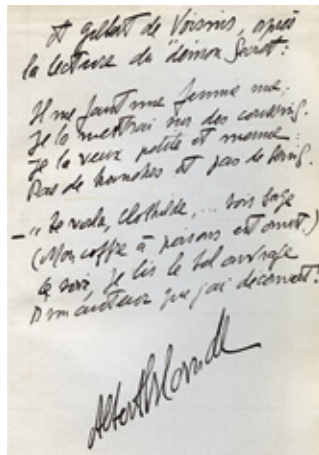 A Gilbert de Voisins, après
la lecture du "démon Secret:
Il me faut une femme nue;
Je la mettrai sur des coussins.
Je la veux petite et menue:
Pas de hanches et pas de seins.
– "Te voilà, Clothilde,... sois sage
(Mon coffre à poisons est ouvert.)
Ce soir, je lis le bel ouvrage
D'un auteur que j'ai découvert."